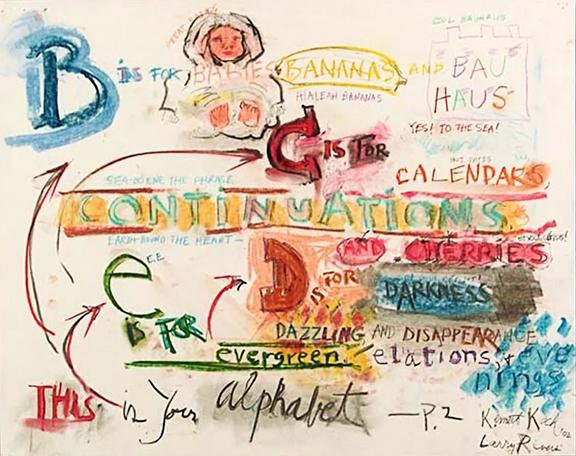 COL. BAUHAUS
B IS FOR BABIES BANANAS AND BAU HAUS
HIALEAH BANANAS
YES! TO THE SEA!
C IS FOR
CALENDARS
SEA-BORNE THE PHRASE
CONTINUATIONS
EARTH-BOUND THE HEART—
AND CHERRIES
D IS FOR DARKNESS
e E.E.
IS FOR
DAZZLING AND DISAPPEARANCE
evergreen, elations, + eve
nings
THIS is your alphabet —P. 2
Kenneth Koch '02
Larry Rivers